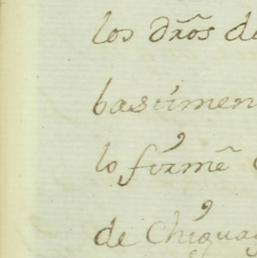 los dr̃os de
bastimen
lo firmẽ
de Chiguag